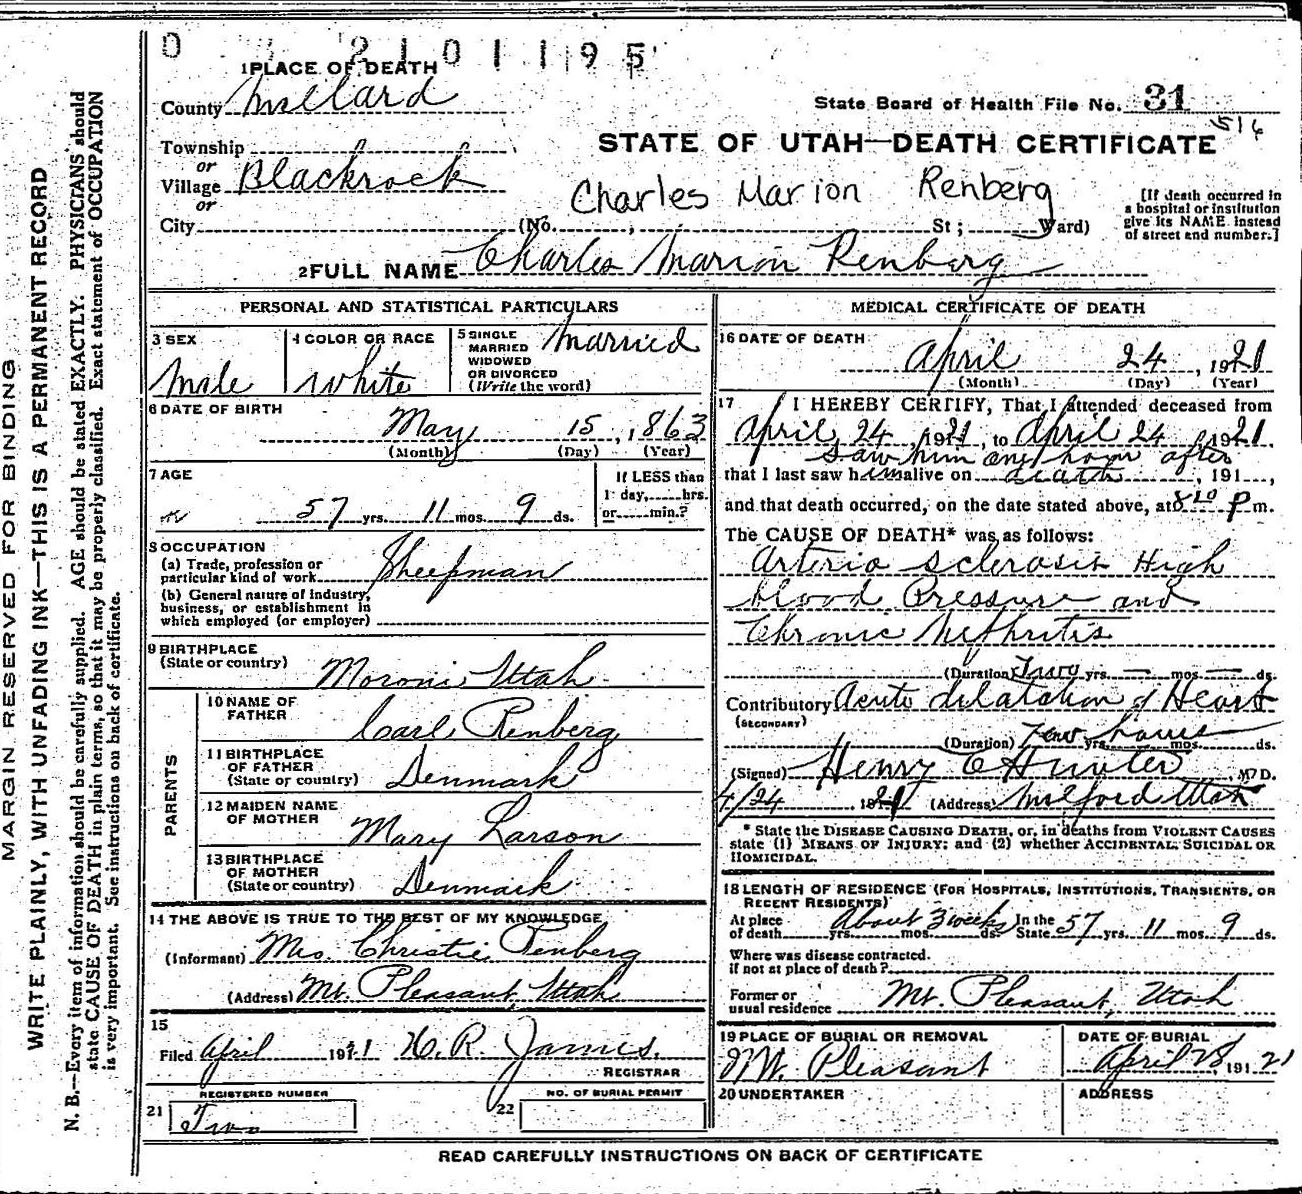 2101195
1 PLACE OF DEATH
County Millard
State Board of Health File No. 31
516
Township
or
Village Blackrock
or
City
STATE OF UTAH—DEATH CERTIFICATE
Charles Marion Renberg
(No. , St ; Ward)
[If death occurred in
a hospital or institution
give its NAME instead
of street and number.]
2 FULL NAME Charles Marion Renberg
PERSONAL AND STATISTICAL PARTICULARS
3 SEX
Male
4 COLOR OR RACE
White
5 SINGLE
MARRIED
WIDOWED
OR DIVORCED
(Write the word)
Married
6 DATE OF BIRTH
May 15, 1863
(Month) (Day) (Year)
7 AGE
57 yrs. 11 mos. 9 ds.
If LESS than
1 day, hrs.
or min.?
8 OCCUPATION
(a) Trade, profession or
particular kind of work Sheepman
(b) General nature of industry,
business, or establishment in
which employed (or employer)
9 BIRTHPLACE
(State or country)
Moroni Utah
PARENTS
10 NAME OF
FATHER
Carl Renberg
11 BIRTHPLACE
OF FATHER
(State or country) Denmark
12 MAIDEN NAME
OF MOTHER
Mary Larson
13 BIRTHPLACE
OF MOTHER
(State or country) Denmark
14 THE ABOVE IS TRUE TO THE BEST OF MY KNOWLEDGE
(Informant) Mrs. Christie Renberg
(Address) Mt. Pleasant, Utah
15
Filed April 1921 H. R. James.
REGISTRAR
REGISTERED NUMBER
21 Two
NO. OF BURIAL PERMIT
22
MEDICAL CERTIFICATE OF DEATH
16 DATE OF DEATH
April 24, 1921
(Month) (Day) (Year)
17 I HEREBY CERTIFY, That I attended deceased from
April 24, 1921, to April 24, 1921,
saw him one hour after
that I last saw him alive on death, 191...,
and that death occurred, on the date stated above, at 8 10 P m.
The CAUSE OF DEATH* was as follows:
Arterio sclerosis High
blood Pressure and
Chronic Nephritis
(Duration) Two yrs. — mos. — ds.
Contributory Acute dilatation of Heart
(SECONDARY)
(Duration) Few hours yrs. mos. ds.
(Signed) Henry C Hunter, M. D.
4/24 1921 (Address) Milford Utah
* State the DISEASE CAUSING DEATH, or, in deaths from VIOLENT CAUSES
state (1) MEANS OF INJURY; and (2) whether ACCIDENTAL, SUICIDAL OR
HOMICIDAL.
18 LENGTH OF RESIDENCE (FOR HOSPITALS, INSTITUTIONS, TRANSIENTS, OR
RECENT RESIDENTS)
At place of death About 3 weeks yrs. mos. ds. In the State 57 yrs. 11 mos. 9 ds.
Where was disease contracted.
if not at place of death?
Former or
usual residence Mt. Pleasant, Utah
19 PLACE OF BURIAL OR REMOVAL
Mt. Pleasant
DATE OF BURIAL
April 28, 1921
20 UNDERTAKER
ADDRESS
READ CAREFULLY INSTRUCTIONS ON BACK OF CERTIFICATE
MARGIN RESERVED FOR BINDING
WRITE PLAINLY, WITH UNFADING INK—THIS IS A PERMANENT RECORD
N. B.—Every item of information should be carefully supplied. AGE should be stated EXACTLY. PHYSICIANS should
state CAUSE OF DEATH in plain terms, so that it may be properly classified. Exact statement of OCCUPATION
is very important. See instructions on back of certificate.